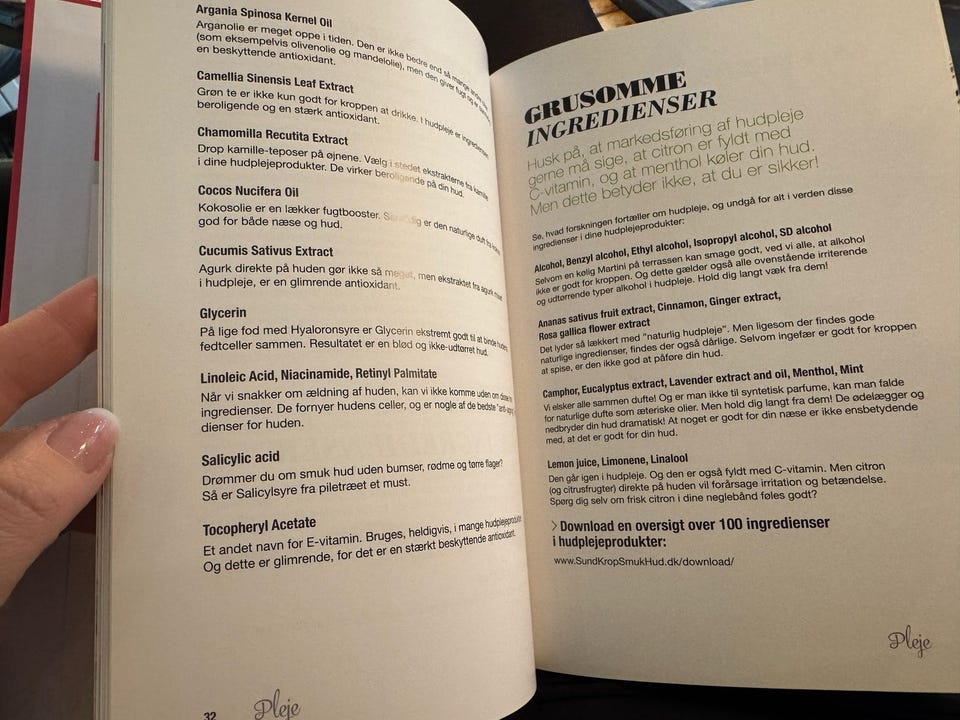 Argania Spinosa Kernel Oil
Arganolie er meget oppe i tiden. Den er ikke bedre end så mange andre
(som eksempelvis olivenolie og mandelolie), men den giver fugt og er
en beskyttende antioxidant.
Camellia Sinensis Leaf Extract
Grøn te er ikke kun godt for kroppen at drikke. I hudpleje er ingrediensen
beroligende og en stærk antioxidant.
Chamomilla Recutita Extract
Drop kamille-teposer på øjnene. Vælg i stedet ekstrakterne fra kamille
i dine hudplejeprodukter. De virker beroligende på din hud.
Cocos Nucifera Oil
Kokosolie er en lækker fugtbooster. er den naturlige duft fra
god for både næse og hud.
Cucumis Sativus Extract
Agurk direkte på huden gør ikke så meget, men ekstraktet fra agurk
i hudpleje, er en glimrende antioxidant.
Glycerin
På lige fod med Hyaloronsyre er Glycerin ekstremt godt til at binde
fedtceller sammen. Resultatet er en blød og ikke-udtørret hud.
Linoleic Acid, Niacinamide, Retinyl Palmitate
Når vi snakker om ældning af huden, kan vi ikke komme uden om disse
ingredienser. De fornyer hudens celler, og er nogle af de bedste
dienser for huden.
Salicylic acid
Drømmer du om smuk hud uden bumser, rødme og tørre flager?
Så er Salicylsyre fra piletræet et must.
Tocopheryl Acetate
Et andet navn for E-vitamin. Bruges, heldigvis, i mange hudplejeprodukter.
Og dette er glimrende, for det er en stærkt beskyttende antioxidant.
32
Pleje
GRUSOMME
INGREDIENSER
Husk på, at markedsføring af hudpleje
gerne må sige, at citron er fyldt med
C-vitamin, og at menthol køler din hud.
Men dette betyder ikke, at du er sikker!
Se, hvad forskningen fortæller om hudpleje, og undgå for alt i verden disse
ingredienser i dine hudplejeprodukter:
Alcohol, Benzyl alcohol, Ethyl alcohol, Isopropyl alcohol, SD alcohol
Selvom en kølig Martini på terrassen kan smage godt, ved vi alle, at alkohol
ikke er godt for kroppen. Og dette gælder også alle ovenstående irriterende
og udtørrende typer alkohol i hudpleje. Hold dig langt væk fra dem!
Ananas sativus fruit extract, Cinnamon, Ginger extract,
Rosa gallica flower extract
Det lyder så lækkert med "naturlig hudpleje". Men ligesom der findes gode
naturlige ingredienser, findes der også dårlige. Selvom ingefær er godt for kroppen
at spise, er den ikke god at påføre din hud.
Camphor, Eucalyptus extract, Lavender extract and oil, Menthol, Mint
Vi elsker alle sammen dufte! Og er man ikke til syntetisk parfume, kan man falde
for naturlige dufte som æteriske olier. Men hold dig langt fra dem! De ødelægger og
nedbryder din hud dramatisk! At noget er godt for din næse er ikke ensbetydende
med, at det er godt for din hud.
Lemon juice, Limonene, Linalool
Den går igen i hudpleje. Og den er også fyldt med C-vitamin. Men citron
(og citrusfrugter) direkte på huden vil forårsage irritation og betændelse.
Spørg dig selv om frisk citron i dine neglebånd føles godt?
> Download en oversigt over 100 ingredienser
i hudplejeprodukter:
www.SundKropSmukHud.dk/download/
Pleje